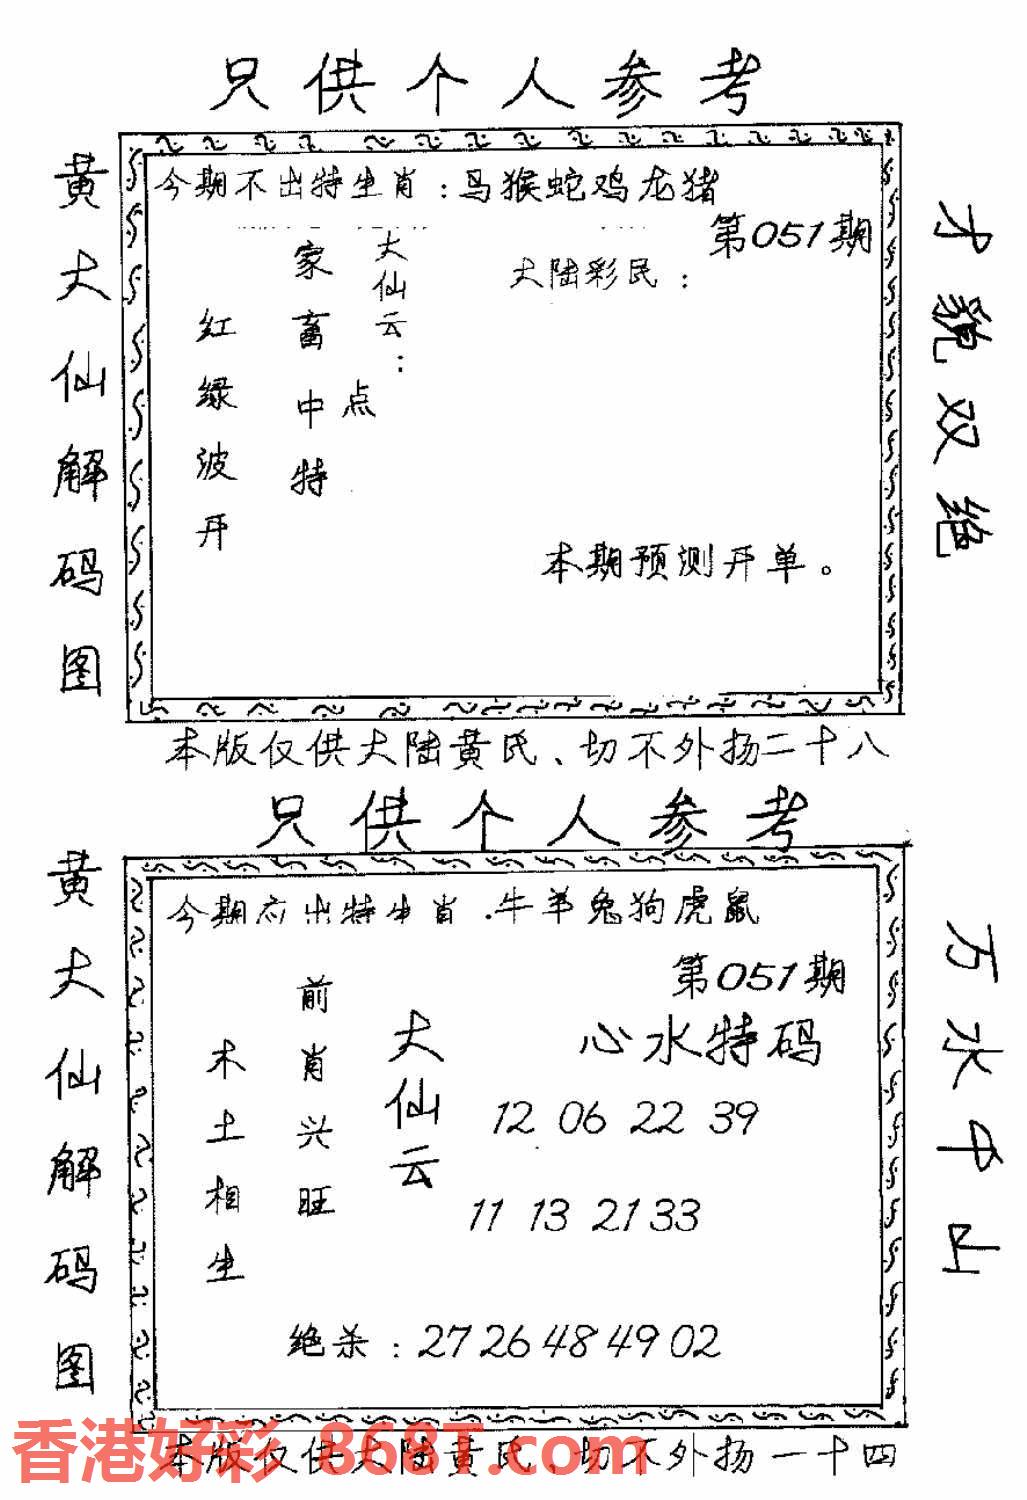 只供个人参考
黄大仙解码图
今期不出特生肖：马猴蛇鸡龙猪
第051期
大陆彩民：
大仙云：
点
家畜中特
红绿波开
本期预测开单。
才貌双绝
本版仅供大陆黄民、切不外扬二十八
只供个人参考
黄大仙解码图
今期应出特生肖.牛羊兔狗虎鼠
第051期
心水特码
大仙云
前肖兴旺
木土相生
12 06 22 39
11 13 21 33
绝杀：27 26 48 49 02
万水千山
本版仅供大陆黄民、切不外扬一十四
香港好彩 868T.com